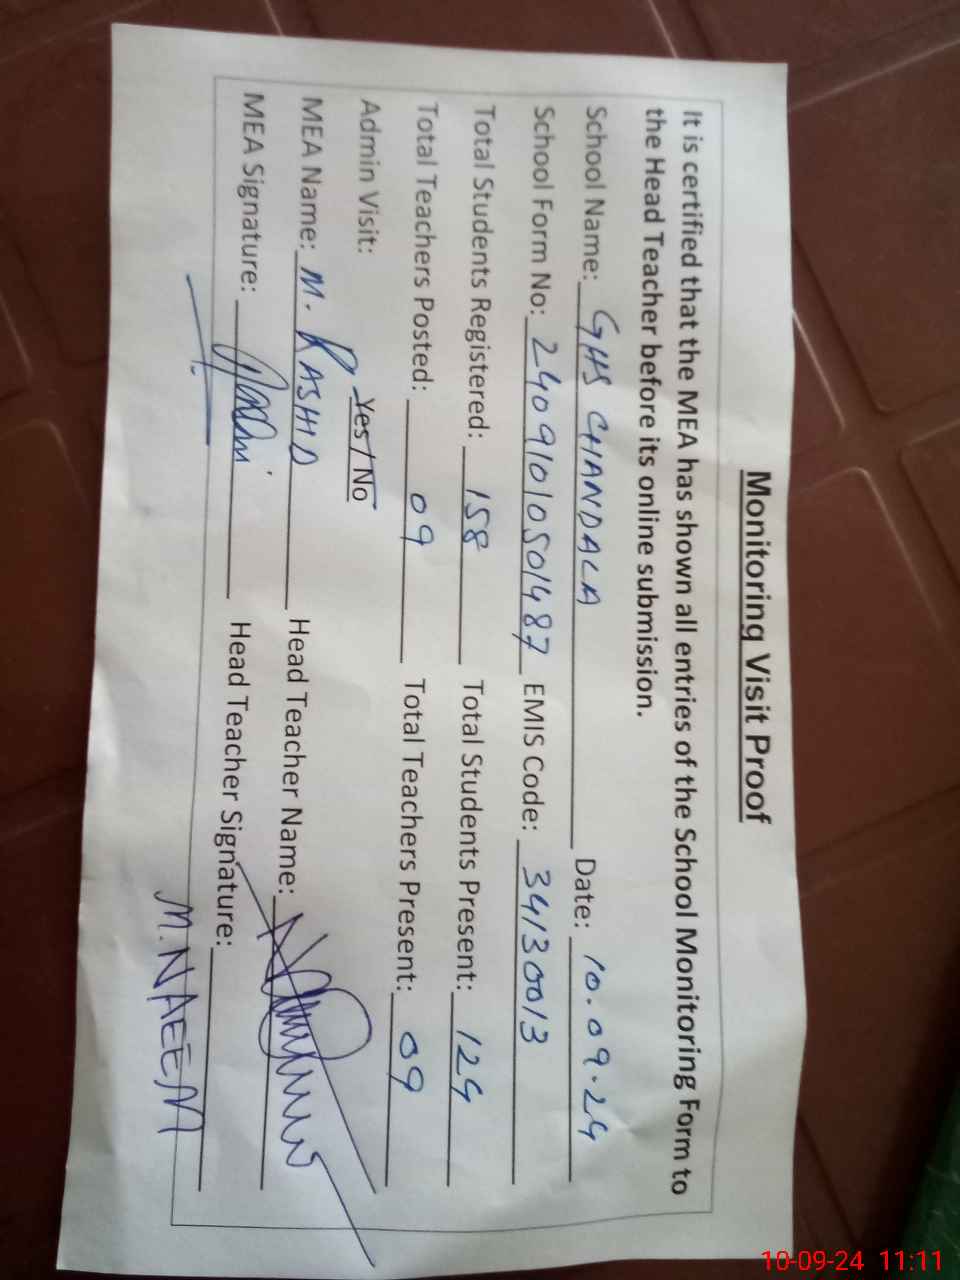 Monitoring Visit Proof
It is certified that the MEA has shown all entries of the School Monitoring Form to
the Head Teacher before its online submission.
School Name: GHS CHANDALA Date: 10.09.24
School Form No: 24091010501487 EMIS Code: 34130013
Total Students Registered: 158 Total Students Present: 124
Total Teachers Posted: 09 Total Teachers Present: 09
Admin Visit: Yes / No
MEA Name: M. RASHID Head Teacher Name:
MEA Signature: Head Teacher Signature:
M. NAEEM
10-09-24 11:11